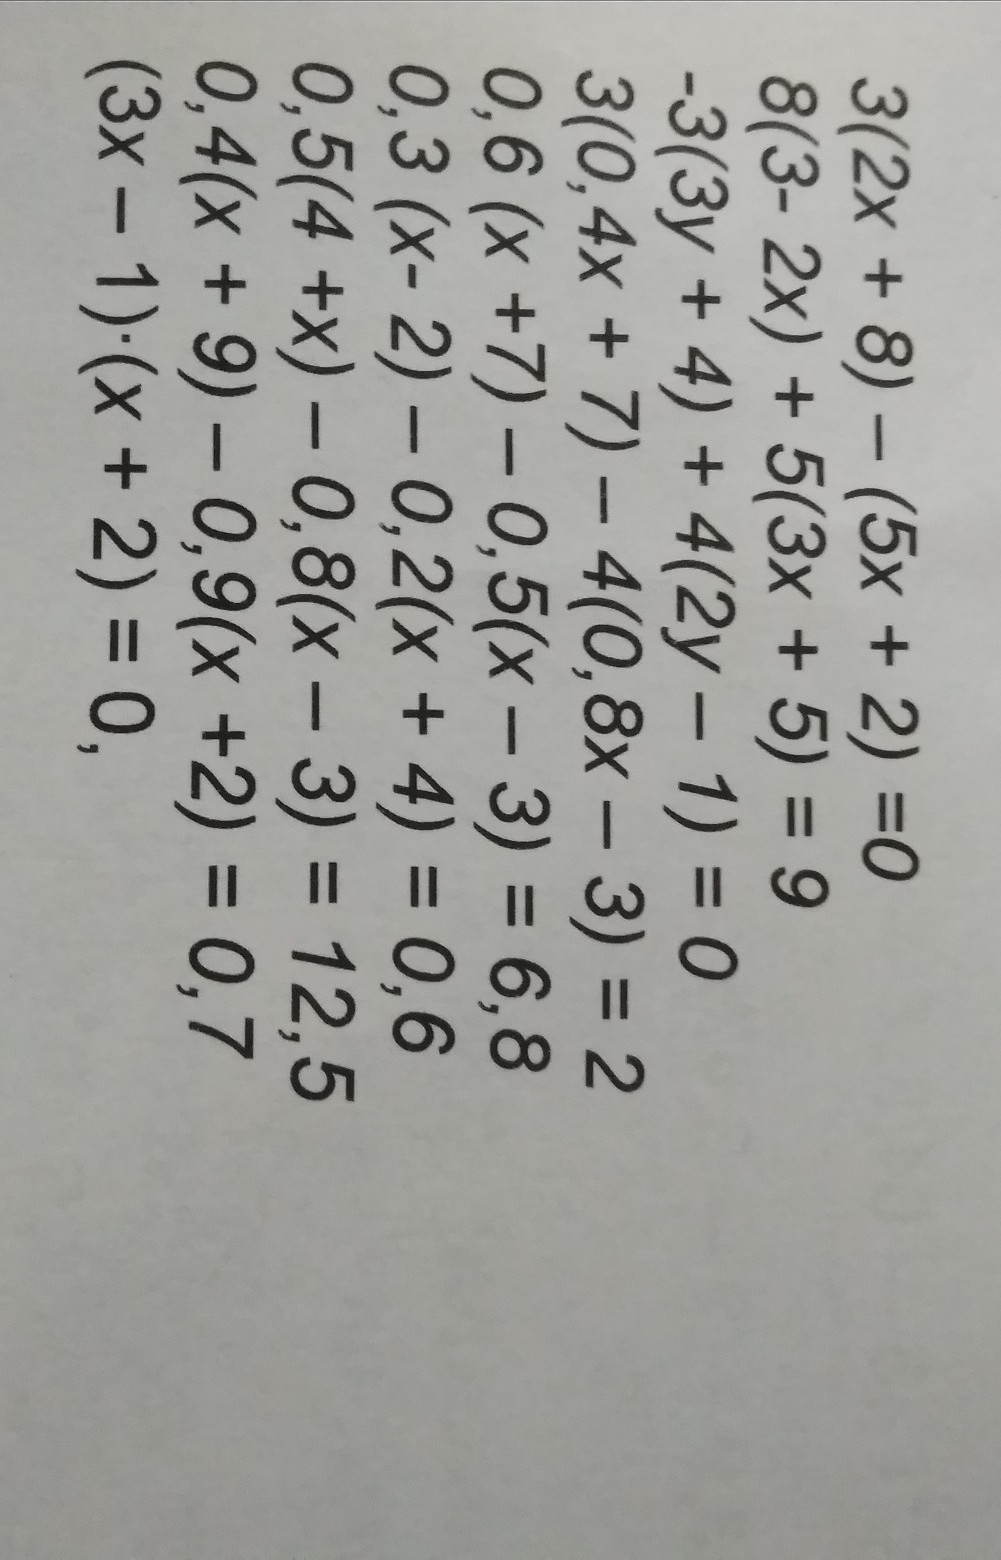 3(2x + 8) – (5x + 2) =0
8(3- 2x) + 5(3x + 5) = 9
-3(3y + 4) + 4(2y – 1) = 0
3(0,4x + 7) – 4(0,8x – 3) = 2
0,6 (x +7) – 0,5(x – 3) = 6,8
0,3 (x- 2) – 0,2(x + 4) = 0,6
0,5(4 +x) – 0,8(x – 3) = 12,5
0,4(x + 9) – 0,9(x +2) = 0,7
(3x – 1)·(x + 2) = 0,